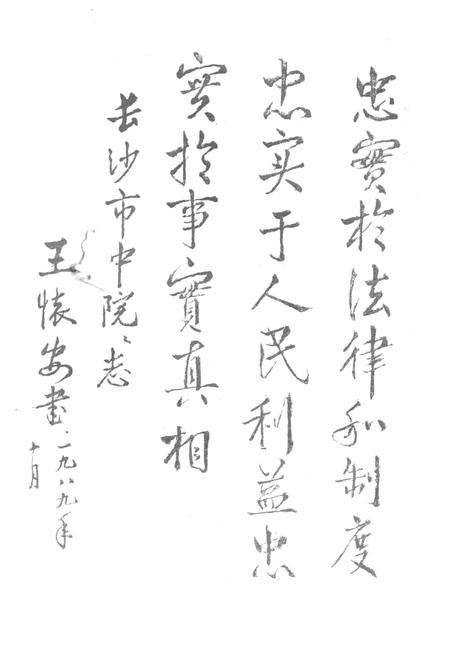 忠實於法律和制度
忠实于人民利益忠
實於事實真相
長沙市中院〻志
王懷安書·一九八九年
十月